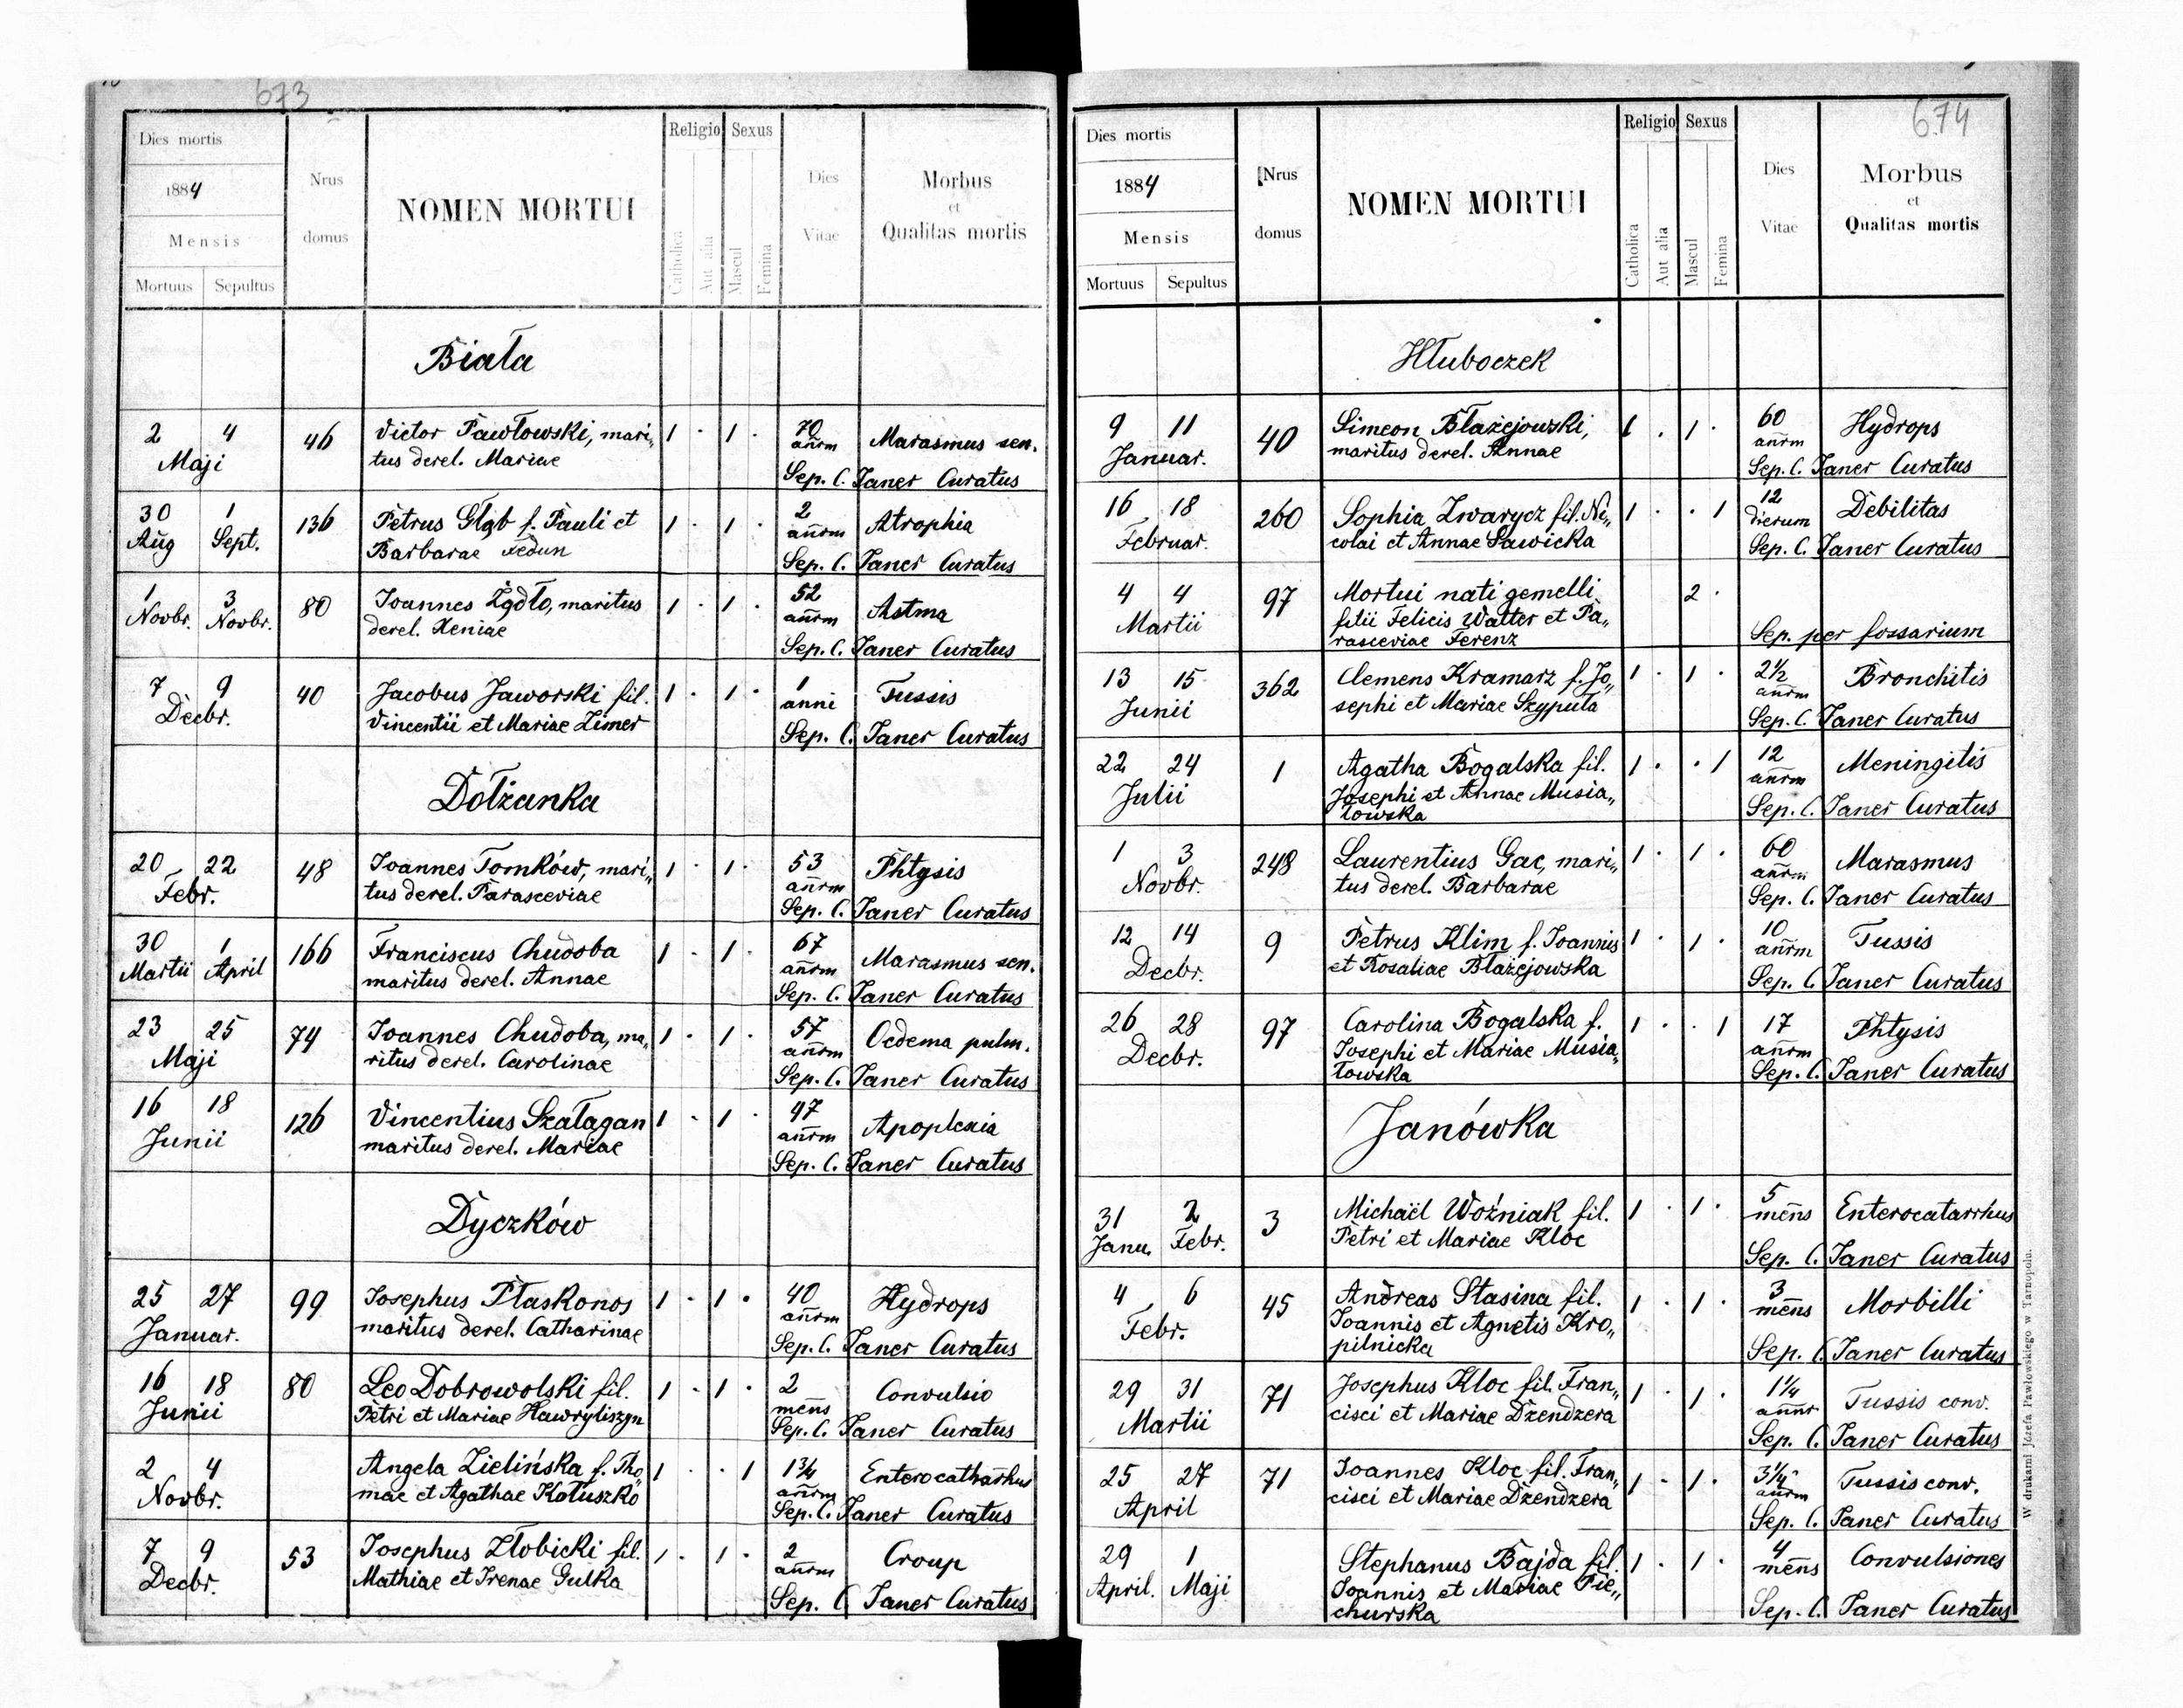 673
Dies mortis
1884
Mensis
Mortuus Sepultus
Nrus domus
NOMEN MORTUI
Religio
Catholica
Aut alia
Sexus
Mascul
Femina
Dies Vitae
Morbus et Qualitas mortis
Biała
2 4 46 Victor Pawłowski, mari„ 1 · 1 · 70 Marasmus sen.
Maji tus derel. Mariae añrm
Sep. C. Janer Curatus
30 1 136 Petrus Głąb f. Pauli et 1 · 1 · 2 Atrophia
Aug Sept. Barbarae Fedun añrm
Sep. C. Janer Curatus
1 3 80 Joannes Żądło, maritus 1 · 1 · 52 Astma
Novbr. Novbr. derel. Xeniae añrm
Sep. C. Janer Curatus
7 9 40 Jacobus Jaworski fil. 1 · 1 · 1 Tussis
Decbr. Vincentii et Mariae Zimer anni
Sep. C. Janer Curatus
Dołżanka
20 22 48 Joannes Tomków, mari„ 1 · 1 · 53 Phtysis
Febr. tus derel. Parasceviae añrm
Sep. C. Janer Curatus
30 1 166 Franciscus Chudoba 1 · 1 · 67 Marasmus sen.
Martii April maritus derel. Annae añrm
Sep. C. Janer Curatus
23 25 74 Joannes Chudoba, ma„ 1 · 1 · 57 Oedema pulm.
Maji ritus derel. Carolinae añrm
Sep. C. Janer Curatus
16 18 126 Vincentius Szałagan 1 · 1 · 47 Apoplexia
Junii maritus derel. Mariae añrm
Sep. C. Janer Curatus
Dyczków
25 27 99 Josephus Płaskonos 1 · 1 · 40 Hydrops
Januar. maritus derel. Catharinae añrm
Sep. C. Janer Curatus
16 18 80 Leo Dobrowolski fil. 1 · 1 · 2 Convulsio
Junii Petri et Mariae Hawryliszyn mens
Sep. C. Janer Curatus
2 4 Angela Zielińska f. Tho„ 1 · · 1 1¾ Enterocatharhus
Novbr. mae et Agathae Kołuszko añrm
Sep. C. Janer Curatus
7 9 53 Josephus Złobicki fil. 1 · 1 · 2 Croup
Decbr. Mathiae et Irenae Gulka añrm
Sep. C Janer Curatus
674
Dies mortis
1884
Mensis
Mortuus Sepultus
Nrus domus
NOMEN MORTUI
Religio
Catholica
Aut alia
Sexus
Mascul
Femina
Dies Vitae
Morbus et Qualitas mortis
Hłuboczek
9 11 40 Simeon Błażejowski, 1 · 1 · 60 Hydrops
Januar. maritus derel. Annae añrm
Sep. C. Janer Curatus
16 18 260 Sophia Zwarycz fil. Ni„ 1 · · 1 12 Debilitas
Februar. colai et Annae Sawicka dierum
Sep. C. Janer Curatus
4 4 97 Mortui nati gemelli 2 ·
Martii filii Felicis Walter et Pa„
rasceviae Ferenz Sep. per fossarium
13 15 362 Clemens Kramarz f. Jo„ 1 · 1 · 2½ Bronchitis
Junii sephi et Mariae Szypuła añrm
Sep. C. Janer Curatus
22 24 1 Agatha Bogalska fil. 1 · · 1 12 Meningitis
Julii Josephi et Annae Musia„ añrm
łowska Sep. C. Janer Curatus
1 3 248 Laurentius Gac, mari„ 1 · 1 · 60 Marasmus
Novbr. tus derel. Barbarae añrm
Sep. C. Janer Curatus
12 14 9 Petrus Klim f. Joannis 1 · 1 · 10 Tussis
Decbr. et Rosaliae Błażejowska añrm
Sep. C. Janer Curatus
26 28 97 Carolina Bogalska f. 1 · · 1 17 Phtysis
Decbr. Josephi et Mariae Musia„ añrm
łowska Sep. C. Janer Curatus
Janówka
31 2 3 Michaël Woźniak fil. 1 · 1 · 5 Enterocatarrhus
Janu. Febr. Petri et Mariae Kloc mens
Sep. C. Janer Curatus
4 6 45 Andreas Stasina fil. 1 · 1 · 3 Morbilli
Febr. Joannis et Agnetis Kro„ mens
pilnicka Sep. C. Janer Curatus
29 31 71 Josephus Kloc fil. Fran„ 1 · 1 · 1¼ Tussis conv.
Martii cisci et Mariae Dżendżera annr
Sep. C. Janer Curatus
25 27 71 Joannes Kloc fil. Fran„ 1 · 1 · 3¼ Tussis conv.
April cisci et Mariae Dżendżera añrm
Sep. C. Janer Curatus
29 1 Stephanus Bajda fil. 1 · 1 · 4 Convulsiones
April. Maji Joannis et Mariae Pie„ mens
churska Sep. C. Janer Curatus
W drukarni Józefa Pawłowskiego w Tarnopolu.